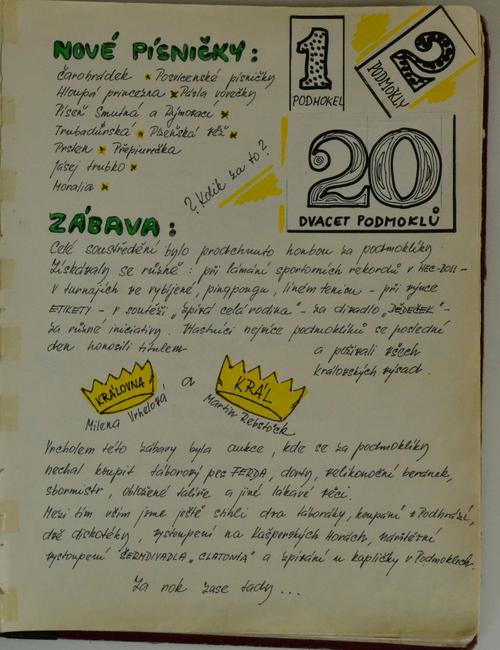 NOVÉ PÍSNIČKY:
Čarohrádek * Posvícenské písničky
Hloupá princezna * Pásla ovečky
Píseň Smutná a Rýmovací *
Trubadúrská * Plzeňská věž *
Prsten * Přepiurečka
Jásej trubko *
Moralia *
? Kolik za to?
1 PODMOKEL
2 PODMOKLY
20
DVACET PODMOKLŮ
ZÁBAVA:
Celé soustředění bylo prodchnuto honbou za podmoklíky
Získávaly se různě: při lámání sportovních rekordů v
v turnajích ve vybíjené, pingpongu, líném tenisu - při výuce
ETIKETY - v soutěži "Zpívá celá rodina" - za divadlo "DĚDEČEK" -
za různé iniciativy. Vlastníci nejvíce podmoklíků se poslední
den honosili titulem
a požívali všech
královských výsad.
KRÁLOVNA a KRÁL
Milena Vrhelová Martin Rebstöck
Vrcholem této zábavy byla aukce, kde se za podmoklíky
nechal koupit táborový pes FERDA, dorty, velikonoční beránek,
sbormistr, obložené talíře a jiné lákavé věci.
Mezi tím vším jsme ještě stihli dva táboráky, koupání v Podhrází,
dvě diskotéky, vystoupení na Kašperských Horách,
vystoupení ČERNDIVADLA "CLATONIA" a zpívání u kapličky v Podmoklech.
Za rok zase tady ...